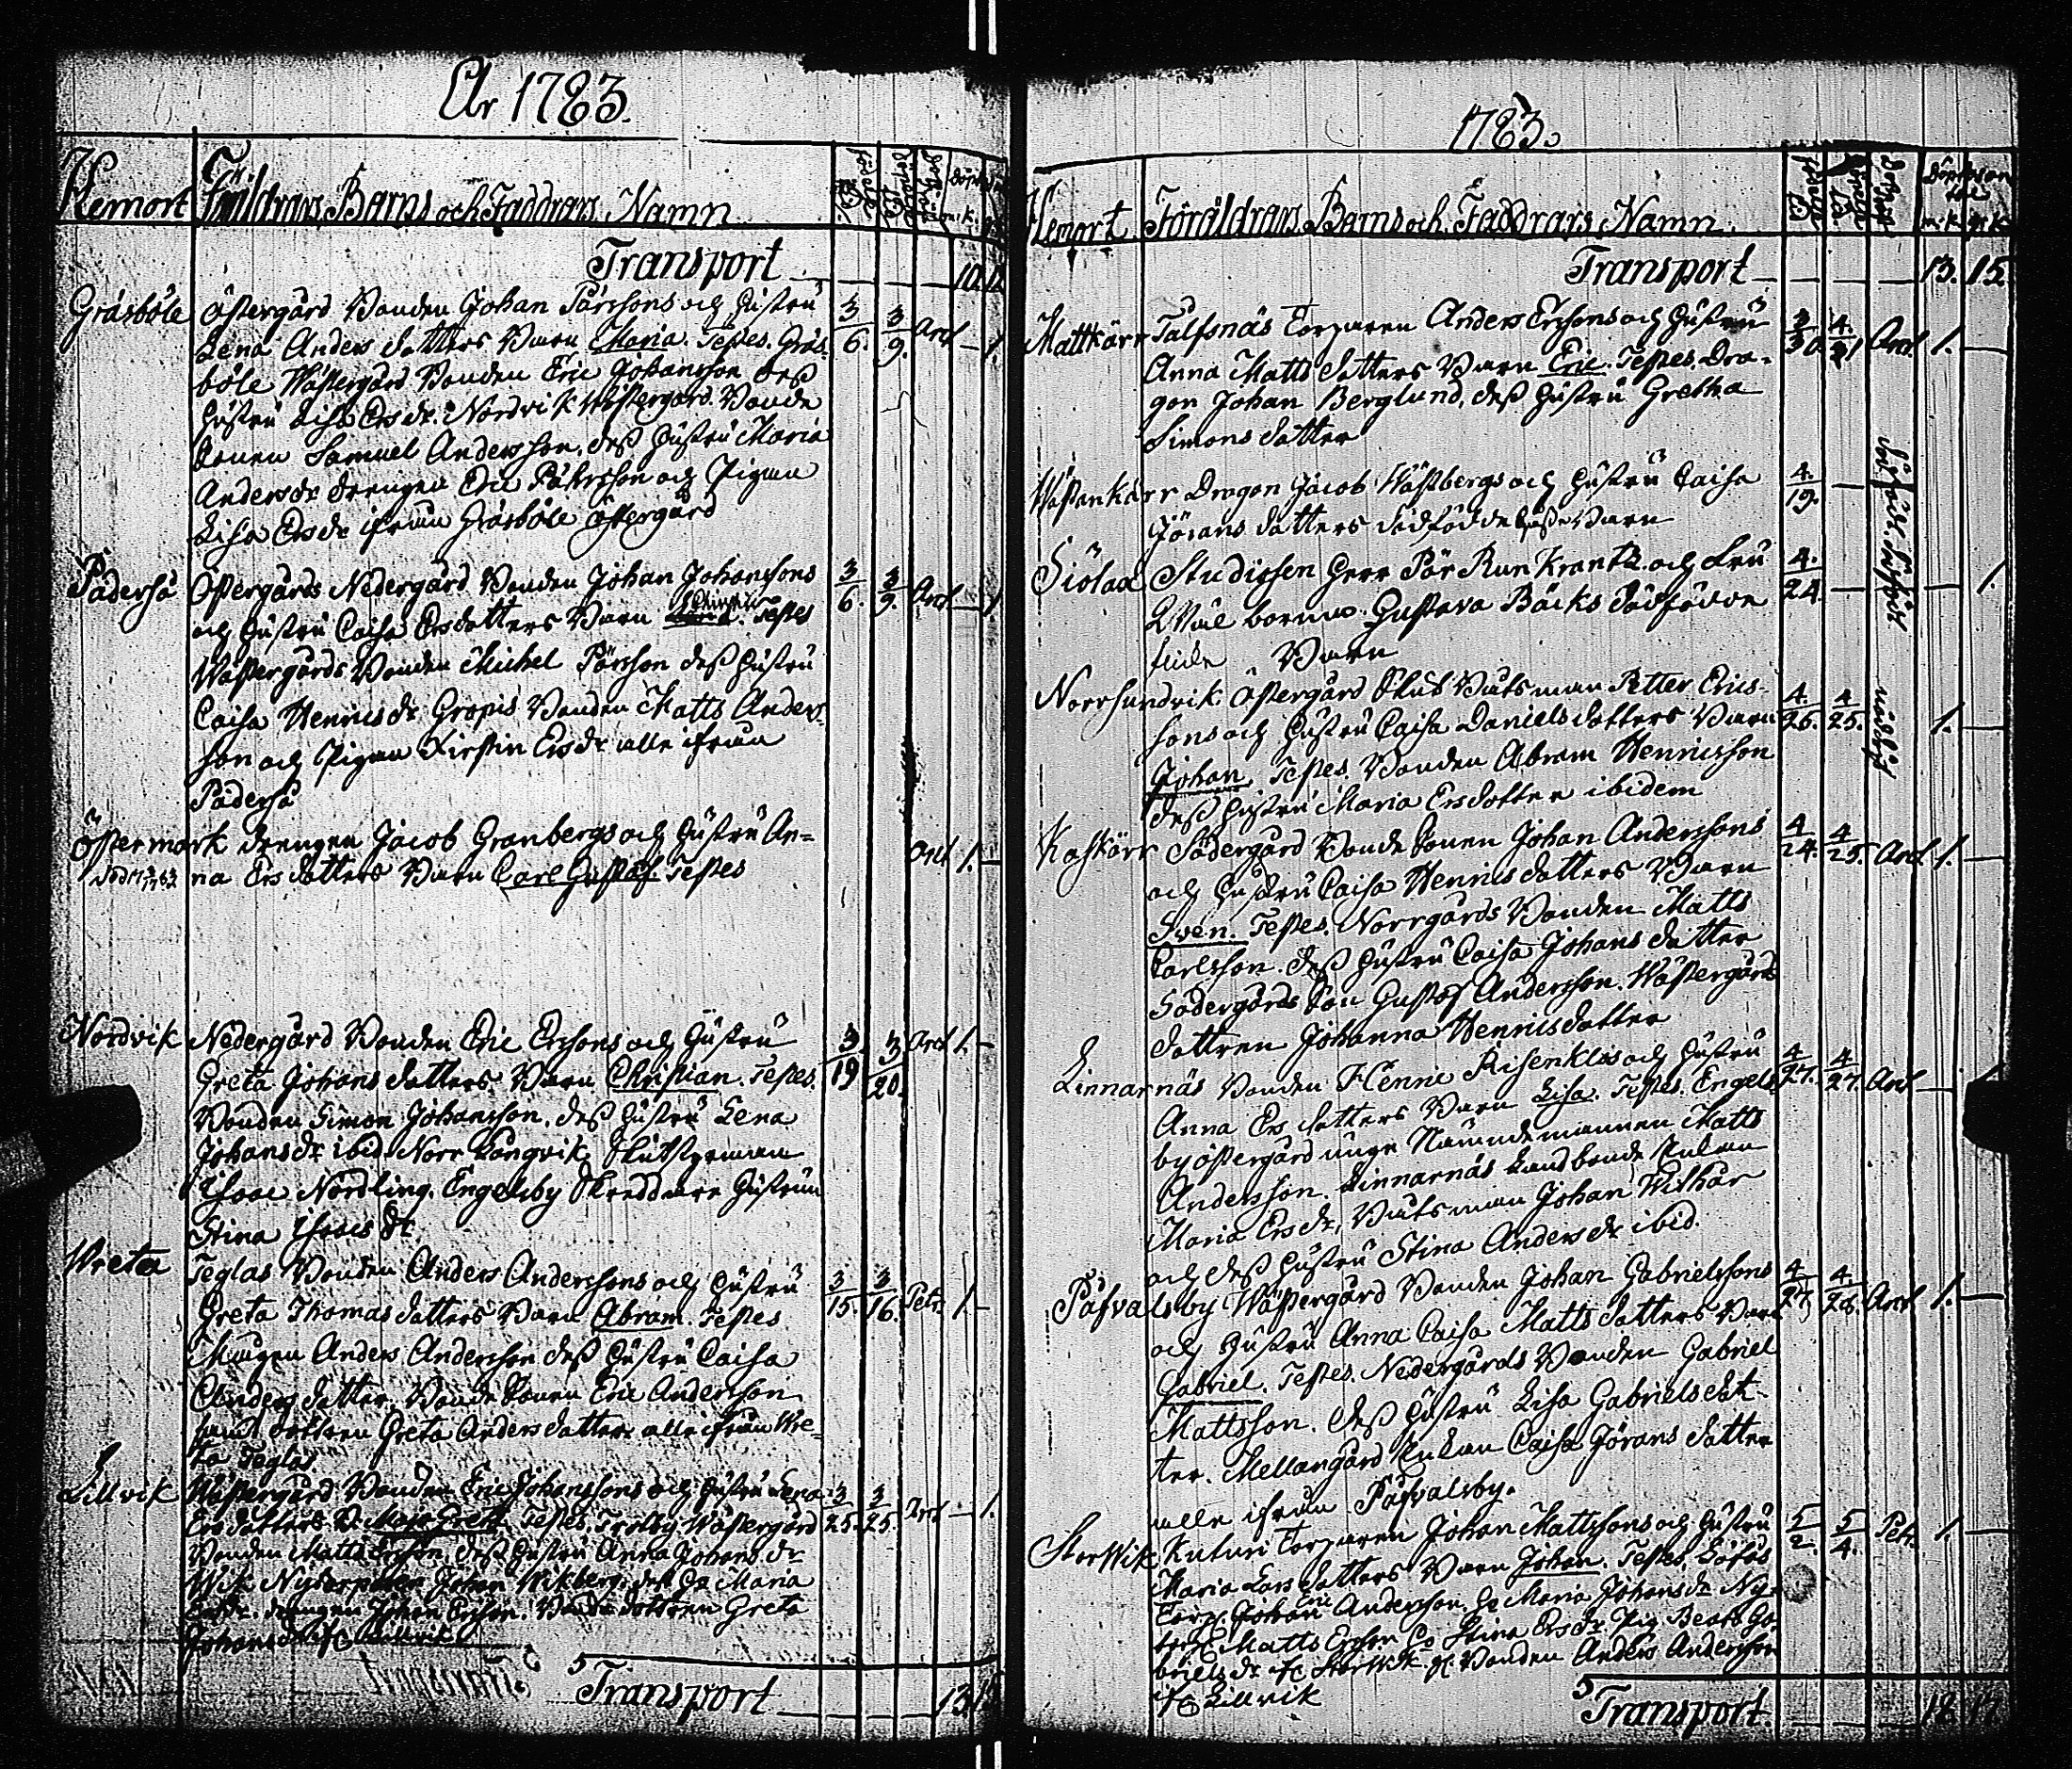 År 1783.
Hemort Föräldrars Barns och Faddrars Namn
Transport 10. 12
Gräsböle Östergård Bonden Johan Pärssons och Hustru 3/6. 3/9. Ard — 1.
Lena Anders dotters Barn Maria. Testes. Gräs-
böle Wästergård Bonden Eric Johansson dess
Hustru Lisa Ersdr. Nordvik Wästergård Bonde
sonen Samuel Andersson, dess Hustru Maria
Andersdr drengen Eric och Pigan
Lisa Ersdr ifrån Gräsböle Östergård
Päderså Östergårds Nedergård Bonden Johan Johanssons 3/6. 3/9. Ard — 1
och Hustru Caisa Ersdotters Barn Testes
Wästergårds Bonden Michel Pärsson dess Hustru
Caisa Henricsdr. Gropis Bonden Matts Anders-
son och Pigan Kirstin Ersdr alle ifrån
Päderså
Östermark drengen Jacob Granbergs och Hustru An= Ard 1. —
na Ersdotters Barn Carl Gustaf. Testes
Nordvik Nedergård Bonden Eric Erssons och Hustru 3/19 3/20. Ard 1. —
Greta Johans dotters Barn Christian. Testes.
Bonden Simon Johansson. dess Hustru Lena
Johansdr ibid. Norr Långvik
Isaac Nordling. Engelsby Skreddare Hustrun
Stina Isaacs dr
Wreta Teglas Bonden Anders Anderssons och Hustru 3/15. 3/16. Petr. 1. —
Greta Thomas dotters Barn Abram. Testes
Mågen Anders Andersson dess Hustru Caisa
Anders dotter. Bonde Sonen Eric Andersson
samt dottren Greta Anders dotter alle ifrån Wre-
ta Teglas
Lillvik Wästergård Bonden Eric Johanssons och Hustru Lena 3/25. 3/25. Ard — 1.
Ers dotters B. Maja Greta. Testes. Trotby Wästergård
Bonden Matts Ersson. dess Hustru Anna Johans dr
Wik Johan Wikberg. dess Ha Maria
drengen Johan Ersson. Bonde dottren Greta
Johansdr Lillvik
Transport 13.
1783.
Hemort Föräldrars Barns och Faddrars Namn.
Transport 13. 15.
Mattkärr Talfsnäs Torparen Anders Erssons och Hustru 3/30. 4/31 Ard. 1. —
Anna Matts dotters Barn Eric. Testes. Dra-
gon Johan Berglund, dess Hustru Gretha
Simons dotter
Wästankärr Dragon Jacob Wästbergs och Hustru Caisa 4/19. —
Jörans dotters dödfödde Barn
Siölax Studissen Herr Pär Run Krantz och Fru 4/24. — — 1.
Wälborna Gustava Bäcks dödfödde
Barn
Norrsundvik Östergård Båtsman Petter Erics- 4/26. 4/25. 1. —
sons och Hustru Caisa Daniels dotters Barn
Johan. Testes. Bonden Abram Henricsson
dess Hustru Maria Ersdotter ibidem
Kaskärr Södergård Bonde Sonen Johan Anderssons 4/24. 4/25. Ard. 1. —
och Hustru Caisa Henrics dotters Barn
Sven. Testes. Norrgårds Bonden Matts
Carlsson. dess Hustru Caisa Johans dotter
Södergårds Son Gustaf Andersson. Wästergårds
dottren Johanna Henricsdotter
Linnarnäs Bonden Henric Risenklos och Hustru 4/27. 4/27. Ard —
Anna Ers dotters Barn Lisa. Testes. Engels-
by Östergård unge Nämndemannen Matts
Andersson. Linnarnäs Landbonde Enkan
Maria Ersdr, Båtsman Johan Withar
och dess Hustru Stina Andersdr ibid.
Påfvalsby Wästergård Bonden Johan Gabrielssons 4/27 4/28. Ard 1. —
och Hustru Anna Caisa Matts dotters Barn
Gabriel. Testes. Nedergårds Bonden Gabriel
Mattsson. dess Hustru Lisa Gabriels dot-
ter. Mellangård Enkan Caisa Jörans dotter
alle ifrån Påfvalsby.
StorWik Kuturi Torparen Johan Mattssons och Hustru 5/2. 5/4. Petr. 1. —
Maria Lars dotters Barn Johan. Testes.
Torp. Johan Eric Andersson. Ha Maria Johansdr Ny-
torp. Matts Ersson Ha Stina Ersdr. Pig. Beata Ga-
briels dr StorWik. Bonden Anders Andersson
Lillvik
Transport.